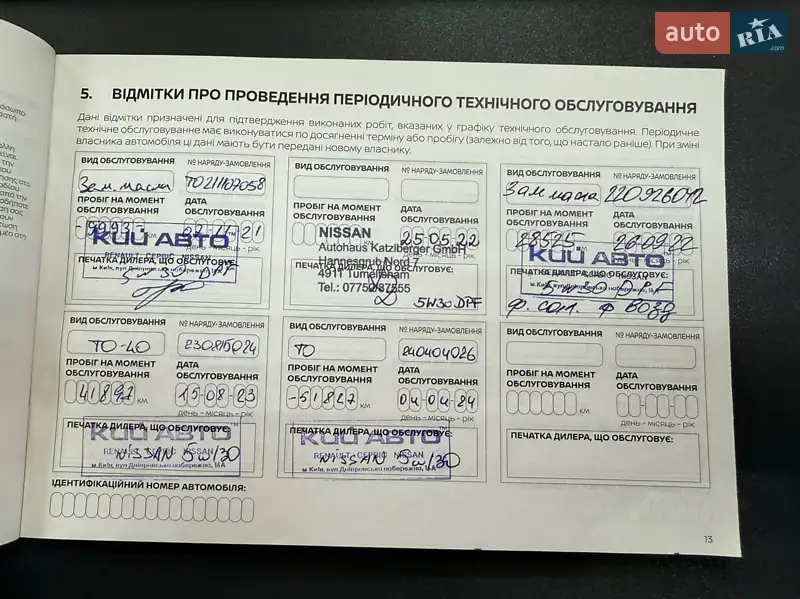 auto RIA.com
5. ВІДМІТКИ ПРО ПРОВЕДЕННЯ ПЕРІОДИЧНОГО ТЕХНІЧНОГО ОБСЛУГОВУВАННЯ
Дані відмітки призначені для підтвердження виконаних робіт, вказаних у графіку технічного обслуговування. Періодичне
технічне обслуговування має виконуватися по досягненні терміну або пробігу (залежно від того, що настало раніше). При зміні
власника автомобіля ці дані мають бути передані новому власнику.
ВИД ОБСЛУГОВУВАННЯ № НАРЯДУ-ЗАМОВЛЕННЯ
Зам. масла ТО21107058
ПРОБІГ НА МОМЕНТ ОБСЛУГОВУВАННЯ
ДАТА ОБСЛУГОВУВАННЯ
КИЙ АВТО
RENAULT СЕРВІС NISSAN
ПЕЧАТКА ДИЛЕРА, ЩО ОБСЛУГОВУЄ:
м.Київ, вул.Дніпровська набережна, 16А
ВИД ОБСЛУГОВУВАННЯ № НАРЯДУ-ЗАМОВЛЕННЯ
ДАТА ОБСЛУГОВУВАННЯ
25 05 22
день – місяць – рік
NISSAN
Autohaus Katzlberger GmbH
Hannesgrub Nord 7
4911 Tumeltsham
Tel.: 07752/87555
5W30 DPF
ВИД ОБСЛУГОВУВАННЯ № НАРЯДУ-ЗАМОВЛЕННЯ
Зам масла 220926012
ПРОБІГ НА МОМЕНТ ОБСЛУГОВУВАННЯ
ДАТА ОБСЛУГОВУВАННЯ
28575 26 09 22
КИЙ АВТО
ПЕЧАТКА ДИЛЕРА, ЩО ОБСЛУГОВУЄ:
5W30 DPF
ф. сал. ф возд
ВИД ОБСЛУГОВУВАННЯ № НАРЯДУ-ЗАМОВЛЕННЯ
ТО-40 230815024
ПРОБІГ НА МОМЕНТ ОБСЛУГОВУВАННЯ
ДАТА ОБСЛУГОВУВАННЯ
41897 км 15-08-23
день – місяць – рік
ПЕЧАТКА ДИЛЕРА, ЩО ОБСЛУГОВУЄ:
КИЙ АВТО
RENAULT СЕРВІС NISSAN
NISSAN 5W/30
м.Київ, вул.Дніпровська набережна, 16А
ВИД ОБСЛУГОВУВАННЯ № НАРЯДУ-ЗАМОВЛЕННЯ
ТО 240404026
ПРОБІГ НА МОМЕНТ ОБСЛУГОВУВАННЯ
ДАТА ОБСЛУГОВУВАННЯ
51827 км 04-04-24
день – місяць – рік
ПЕЧАТКА ДИЛЕРА, ЩО ОБСЛУГОВУЄ:
КИЙ АВТО
RENAULT СЕРВІС NISSAN
NISSAN 5W/30
м.Київ, вул.Дніпровська набережна, 16А
ВИД ОБСЛУГОВУВАННЯ № НАРЯДУ-ЗАМОВЛЕННЯ
ПРОБІГ НА МОМЕНТ ОБСЛУГОВУВАННЯ
ДАТА ОБСЛУГОВУВАННЯ
км
день – місяць – рік
ПЕЧАТКА ДИЛЕРА, ЩО ОБСЛУГОВУЄ:
ІДЕНТИФІКАЦІЙНИЙ НОМЕР АВТОМОБІЛЯ:
13